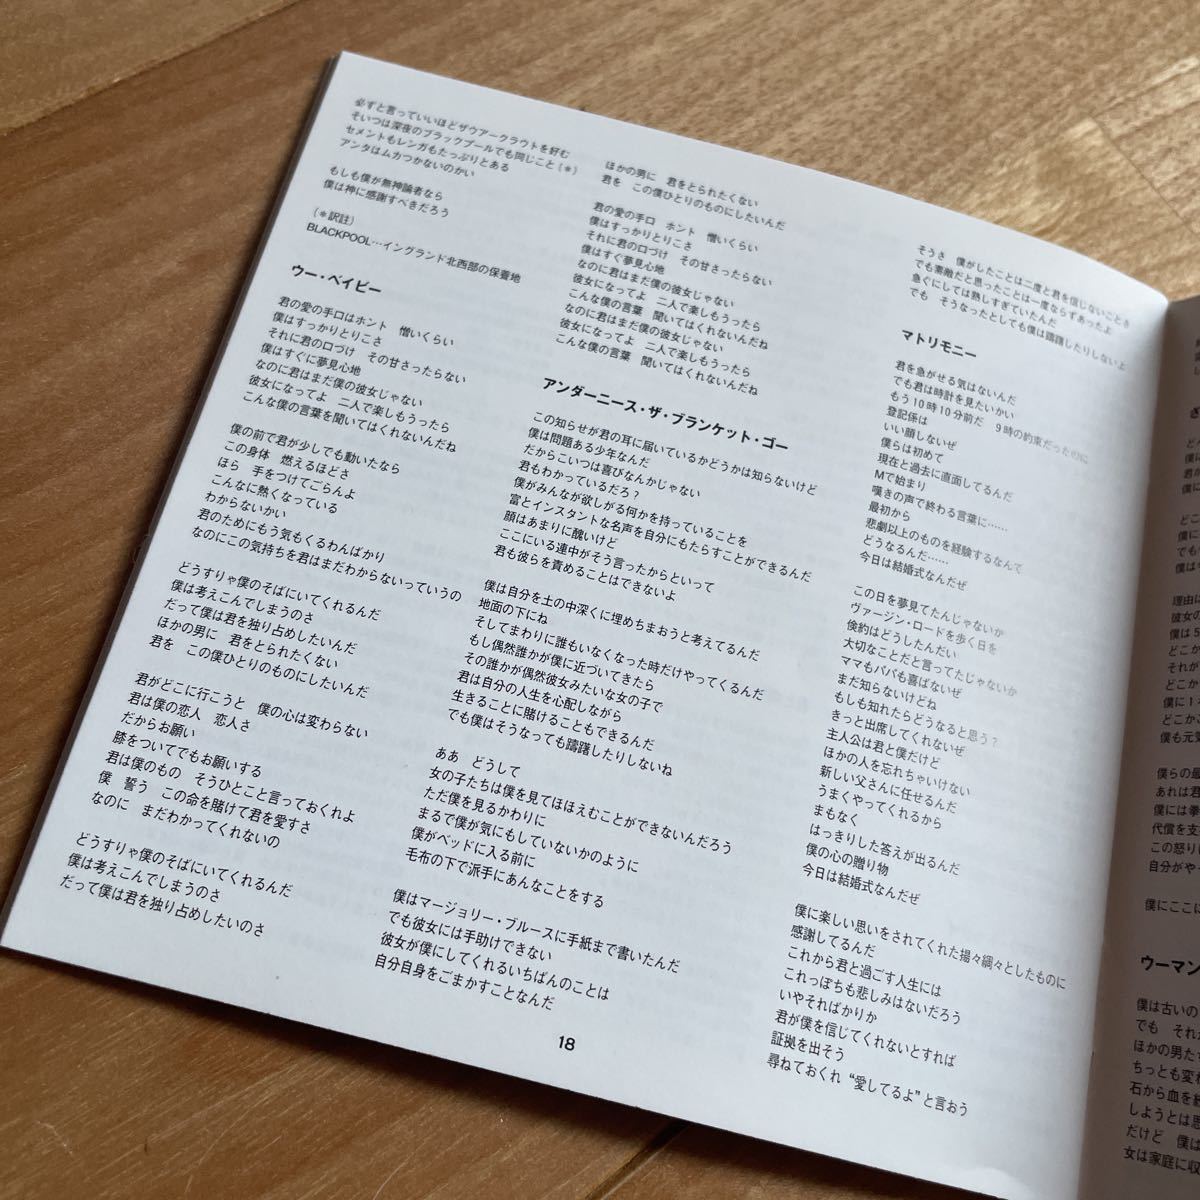 必ずと言っていいほどザウアークラウトを好む
そいつは深夜のブラックプールでも同じこと(＊)
セメントもレンガもたっぷりとある
アンタはムカつかないのかい
もしも僕が無神論者なら
僕は神に感謝すべきだろう
(＊訳註)
BLACKPOOL…イングランド北西部の保養地
ウー・ベイビー
君の愛の手口はホント　憎いくらい
僕はすっかりとりこさ
それに君の口づけ　その甘さったらない
僕はすぐに夢見心地
なのに君はまだ僕の彼女じゃない
彼女になってよ　二人で楽しもうったら
こんな僕の言葉を聞いてはくれないんだね
僕の前で君が少しでも動いたなら
この身体　燃えるほどさ
ほら　手をつけてごらんよ
こんなに熱くなっている
わからないかい
君のためにもう気もくるわんばかり
なのにこの気持ちを君はまだわからないっていうの
どうすりゃ僕のそばにいてくれるんだ
僕は考えこんでしまうのさ
だって僕は君を独り占めしたいんだ
ほかの男に　君をとられたくない
君を　この僕ひとりのものにしたいんだ
君がどこに行こうと　僕の心は変わらない
君は僕の恋人　恋人さ
だからお願い
膝をついてでもお願いする
君は僕のもの　そうひとこと言っておくれよ
僕　誓う　この命を賭けて君を愛すさ
なのに　まだわかってくれないの
どうすりゃ僕のそばにいてくれるんだ
僕は考えこんでしまうのさ
だって僕は君を独り占めしたいのさ
ほかの男に　君をとられたくない
君を　この僕ひとりのものにしたいんだ
君の愛の手口　ホント　憎いくらい
僕はすっかりとりこさ
それに君の口づけ　その甘さったらない
僕はすぐ夢見心地
なのに君はまだ僕の彼女じゃない
彼女になってよ　二人で楽しもうったら
こんな僕の言葉　聞いてはくれないんだね
なのに君はまだ僕の彼女じゃない
彼女になってよ　二人で楽しもうったら
こんな僕の言葉　聞いてはくれないんだね
アンダーニース・ザ・ブランケット・ゴー
この知らせが君の耳に届いているかどうかは知らないけど
僕は問題ある少年なんだ
だからこいつは喜びなんかじゃない
君もわかっているだろ？
僕がみんなが欲しがる何かを持っていることを
富とインスタントな名声を自分にもたらすことができるんだ
顔はあまりに醜いけど
ここにいる連中がそう言ったからといって
君も彼らを責めることはできないよ
僕は自分を土の中深くに埋めちまおうと考えてるんだ
地面の下にね
そしてまわりに誰もいなくなった時だけやってくるんだ
もし偶然誰かが僕に近づいてきたら
その誰かが偶然彼女みたいな女の子で
君は自分の人生を心配しながら
生きることに賭けることもできるんだ
でも僕はそうなっても躊躇したりしないね
ああ　どうして
女の子たちは僕を見てほほえむことができないんだろう
ただ僕を見るかわりに
まるで僕が気にもしていないかのように
僕がベッドに入る前に
毛布の下で派手にあんなことをする
僕はマージョリー・ブルースに手紙まで書いたんだ
でも彼女には手助けできない
彼女が僕にしてくれるいちばんのことは
自分自身をごまかすことなんだ
そうき　僕がしたことは二度と君を信じないことさ
でも素敵だと思ったことは一度ならずあったよ
急ぐにしては熟しすぎていたんだ
でも　そうなったとしても僕は躊躇したりしないよ
マトリモニー
君を急がせる気はないんだ
でも君は時計を見たいかい
もう10時10分前だ　9時の約束だったのに
登記係は
いい顔しないぜ
僕らは初めて
現在と過去に直面してるんだ
Mで始まり
嘆きの声で終わる言葉に……
最初から
悲劇以上のものを経験するなんて
どうなるんだ……
今日は結婚式なんだぜ
この日を夢見てたんじゃないか
ヴァージン・ロードを歩く日を
倹約はどうしたんだい
大切なことだと言ってたじゃないか
ママもパパも喜ばないぜ
まだ知らないけどね
もしも知れたらどうなると思う？
きっと出席してくれないぜ
主人公は君と僕だけど
ほかの人を忘れちゃいけない
新しい父さんに任せるんだ
うまくやってくれるから
まもなく
はっきりした答えが出るんだ
僕の心の贈り物
今日は結婚式なんだぜ
僕に楽しい思いをされてくれた揚々綱々としたものに
感謝してるんだ
これから君と過ごす人生には
これっぽちも悲しみはないだろう
いやそればかりか
君が僕を信じてくれないとすれば
証拠を出そう
尋ねておくれ “愛してるよ”と言おう
18
理由は
彼女の
僕は5
どこか
それが
どこか
僕に1
どこか
僕も元気
僕らの最
あれは君
僕には拳
代償を支
この怒り
自分がや
僕にここに
ウーマン
僕は古いの
でも　それ
ほかの男た
ちっとも変わ
石から血を
しようとは思
だけど　僕は
女は家庭に収